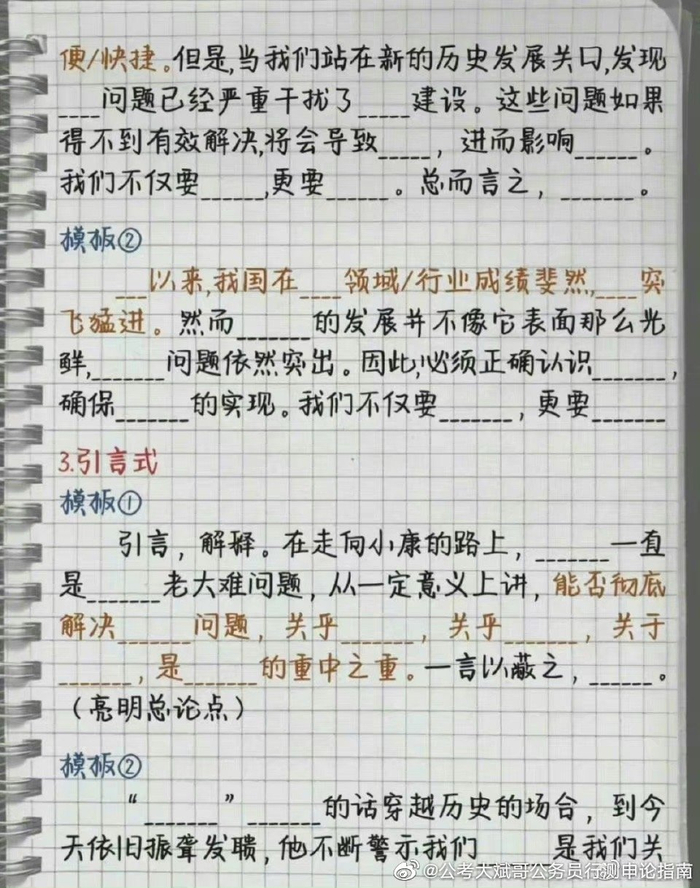 便/快捷。但是,当我们站在新的历史发展关口,发现
____问题已经严重干扰了_____建设。这些问题如果
得不到有效解决,将会导致_____，进而影响______。
我们不仅要______,更要______。总而言之，_______。
模板②
___以来,我国在____领域/行业成绩斐然,____突
飞猛进。然而_______的发展并不像它表面那么光
鲜,_______问题依然突出。因此,必须正确认识_______,
确保_______的实现。我们不仅要_______，更要_______
3.引言式
模板①
引言，解释。在走向小康的路上，_______一直
是_______老大难问题，从一定意义上讲，能否彻底
解决_______问题，关乎_______，关乎_______，关于
_______，是_______的重中之重。一言以蔽之，______。
（亮明总论点）
模板②
“_______”_______的话穿越历史的场合，到今
天依旧振聋发聩，他不断警示我们 是我们关
@公考大斌哥公务员行测申论指南